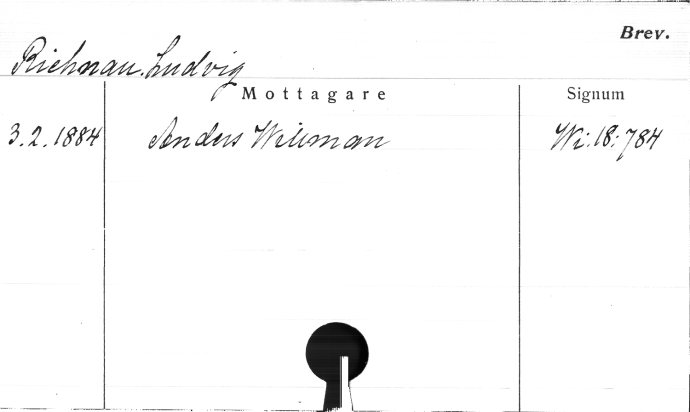 Brev.
Richnau. Ludvig
Mottagare Signum
3.2.1884 Anders Willman Wi:18:784